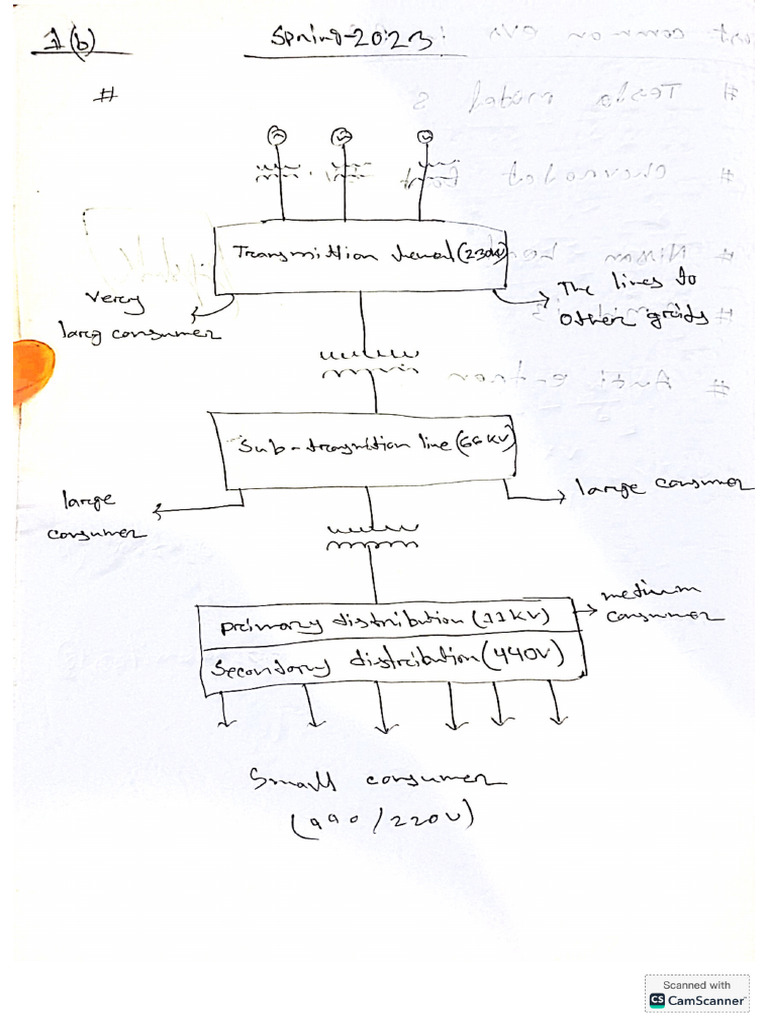 1(b)
Spring-2023
#
Transmittion level (230kV)
Very
larg consumer
The lines to
other grids
Sub-transmition line (66KV)
large
consumer
large consumer
primary distribution (11KV)
medium
consumer
Secondary distribution (440V)
Small consumer
(440/220V)
Scanned with
CS CamScanner